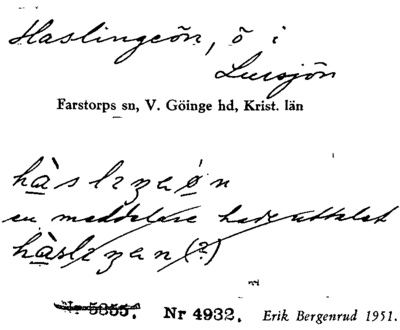 Haslingeön, ö i
Lursjön
Farstorps sn, V. Göinge hd, Krist. län
hàsliŋaøn
en meddelare hade uttalet
hàsliŋan (?)
Nr 5355. Nr 4932. Erik Bergenrud 1951.